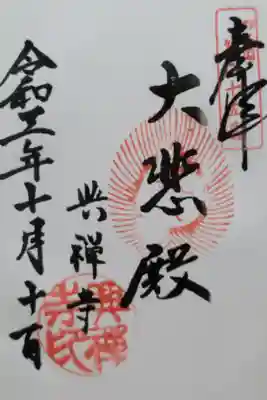 奉拝
大悲殿
興禅寺
令和年十月十一日
興禅寺印